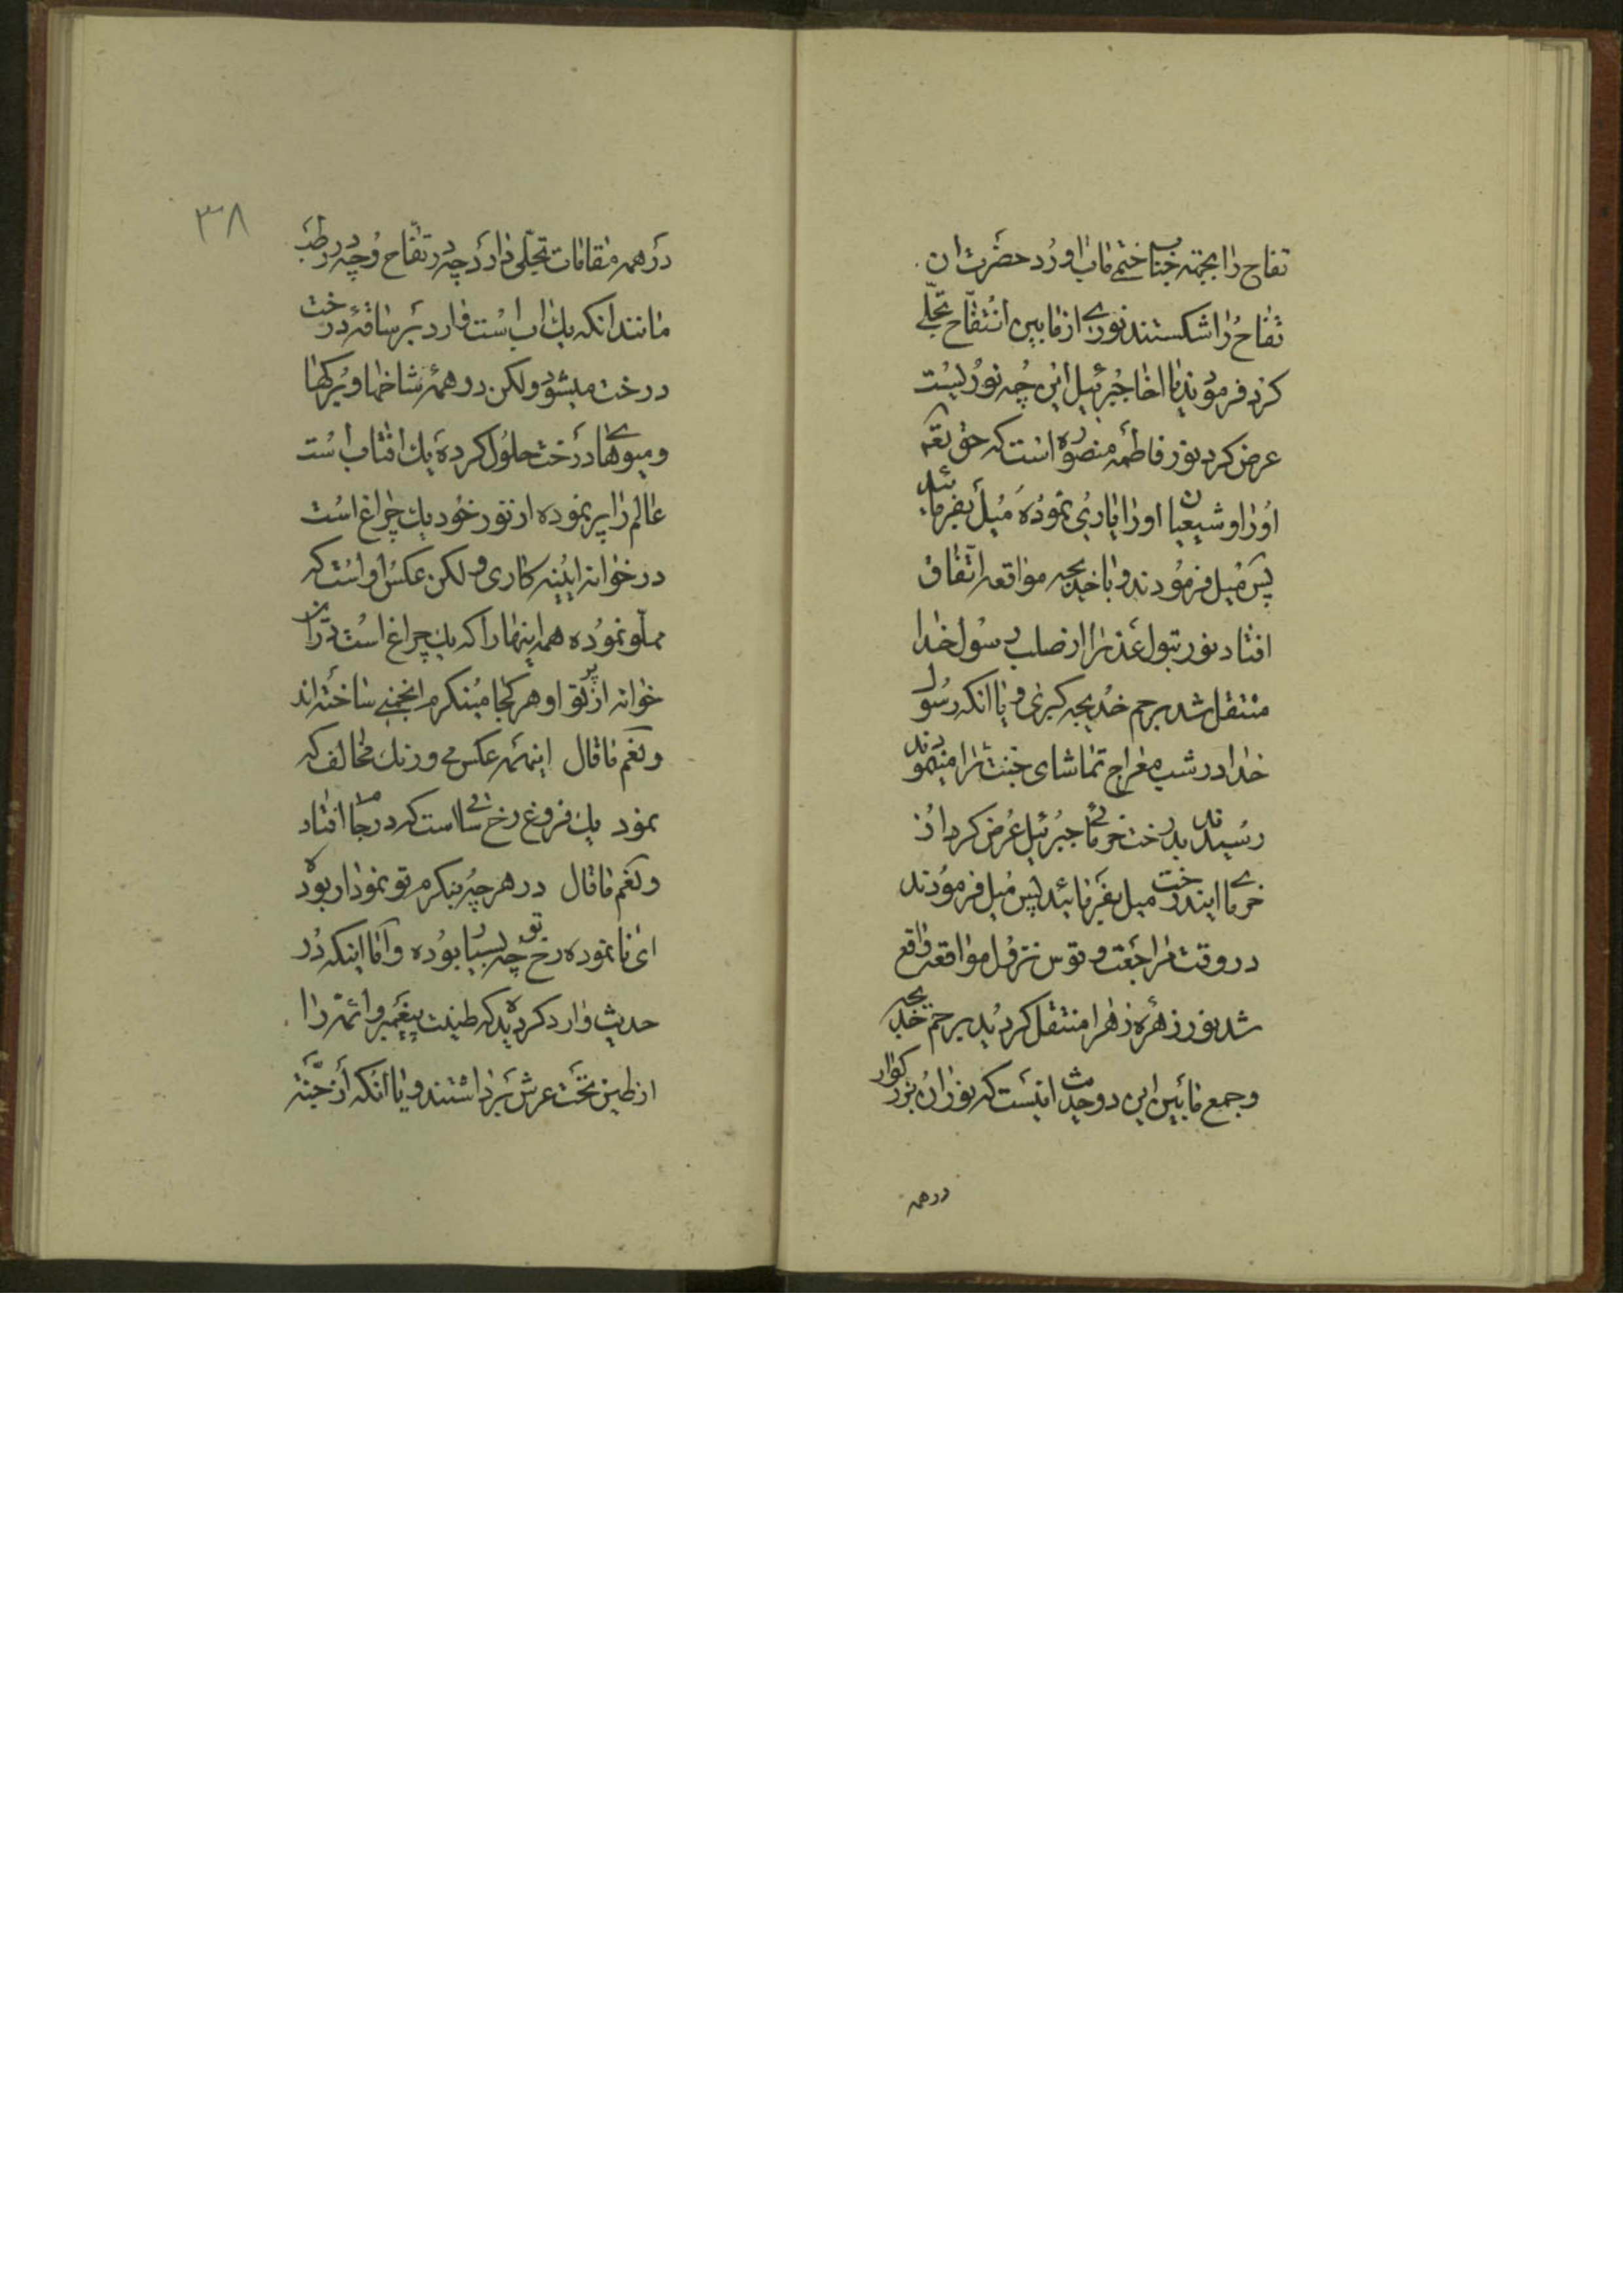 تفاح را بجهته جناب ختمی ماب اورد حضرت ان
تفاح را شکستند نوری از مابین ان تفاح تجلی
کرد فرمودند یا اخا جبرئیل این چه نوریست
عرض کرد نور فاطمه منصوره است که حق بقم
او را و شیعیان او را یاری نموده میل بفرمائید
پس میل فرمودند و با خدیجه مواقعه اتفاق
افتاد نور بتول عذرا از صلب رسول خدا
منتقل شد برحم خدیجه کبری و یا انکه رسول
خدا در شب معراج تماشای جنت را مینمودند
رسیدند بدرخت خرمائی جبرئیل عرض کرد از
خرمای ایندرخت میل بفرمائید پس میل فرمودند
در وقت مراجعت و قوس نزول مواقعه واقع
شد نور زهره زهرا منتقل کردید برحم خدیجه
و جمع مابین این دو حدیث اینست که نور ان بزرکوار
درهمه
٣٨
در همه مقامات تجلی دارد چه در تفاح و چه در رطب
مانند انکه یك اب است وارد بر ساقه درخت
درخت میشود ولکن در همه شاخها و برکها
و میوهای درخت حلول کرده یك افتاب است
عالم را پر نموده از نور خود یك چراغ است
در خوانه ایینه کاری و لکن عکس او است که
مملو نموده همه اینها را که یك چراغ است در ان
خوانه از پرتو او هر کجا مینکرم انجمنی ساخته اند
و نعم ما قال اینهمه عکس می و رنك مخالف که
نمود یك فروغ رخ ساقی است که در جام افتاد
و نعم ما قال در هر چه بنکرم تو نمودار بوده
ای نا نموده رخ تو چه بسیار بوده و اما اینکه در
حدیث وارد کردیده که طینت پیغمبر و ائمه را
از طین تحت عرش برداشتند و یا انکه از جنة